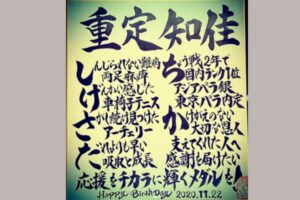 重定知佳
しんじられない難病
両足麻痺
げんかい感じた
車椅子テニス
さがし続け見つけた
アーチェリー
だれよりも早い
吸収と成長
ちょう戦2年で
国内ランク1位
アジアパラ銀
東京パラ内定
かけがえのない
大切な恩人
支えてくれた人へ
感謝を届けたい
応援をチカラに輝くメダルを!
Happy BirthDay 2020.11.22